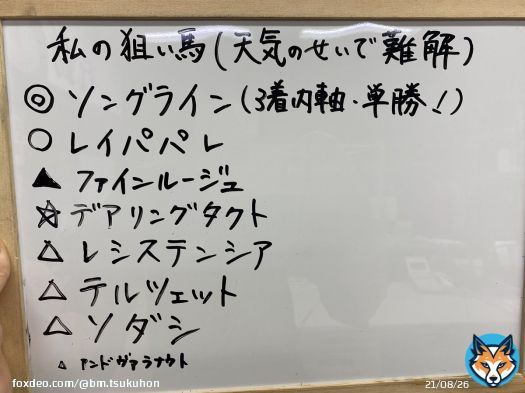 私の狙い馬(天気のせいで難解)
◎ ソングライン(3着内軸・単勝!)
○ レイパパレ
▲ ファインルージュ
☆ デアリングタクト
△ レシステンシア
△ テルツェット
△ ソダシ
△ アンドヴァラナウト
foxdeo.com/@bm.tsukuhon
21/08/26